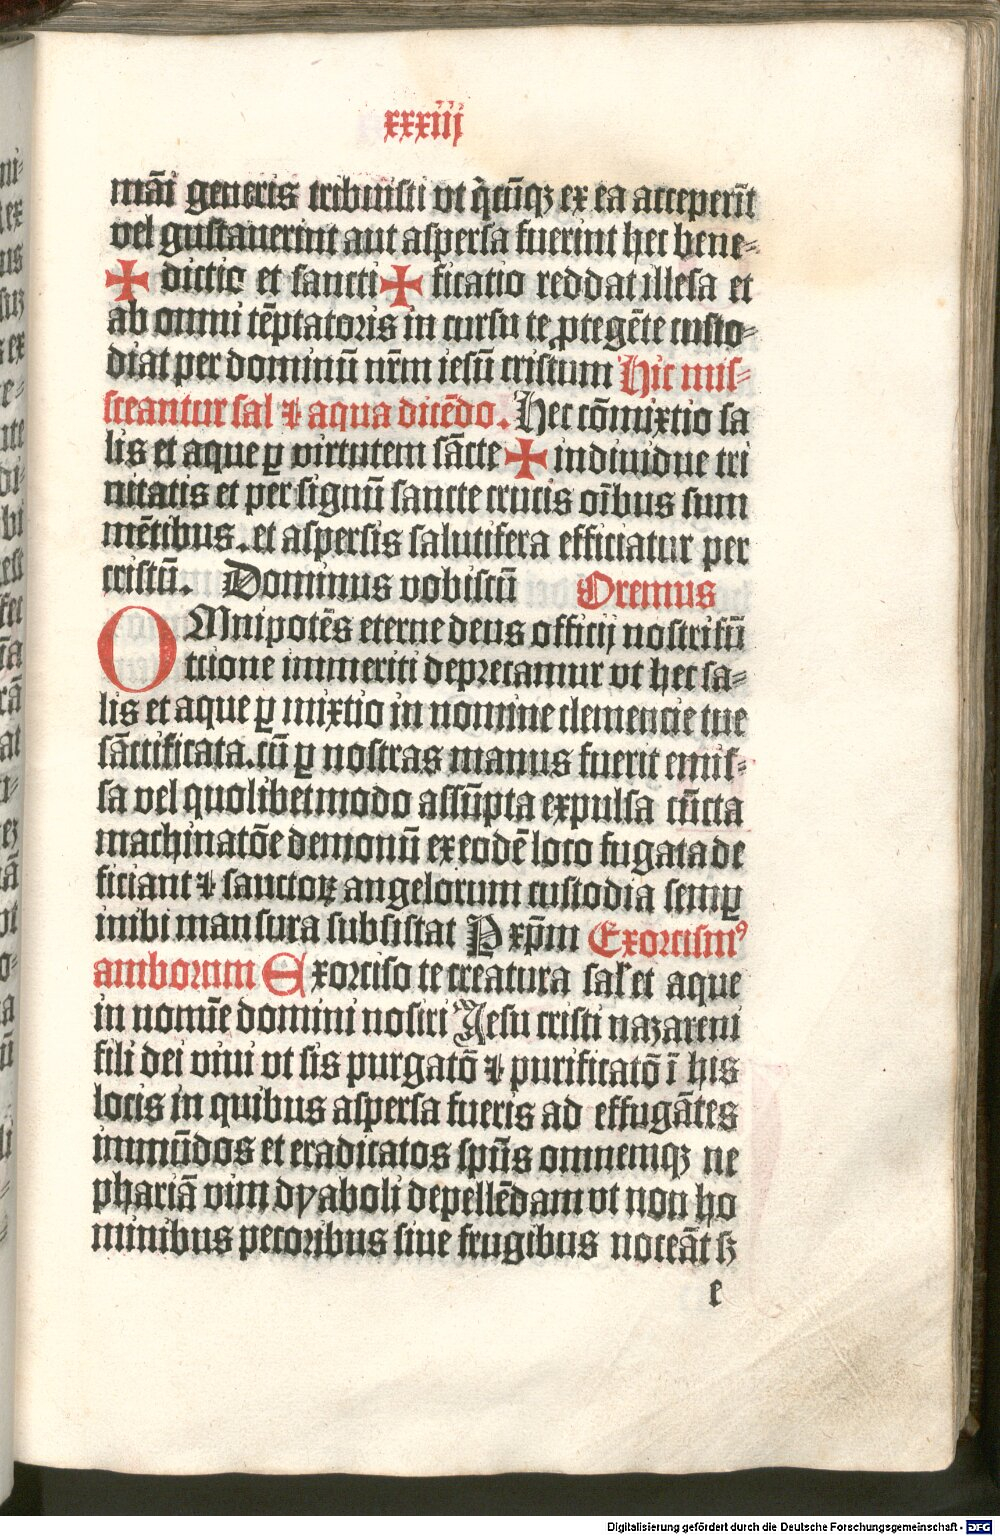 xxxiij
māi generis tribuisti vt q̄cūqꝫ ex ea acceperīt
vel gustauerint aut aspersa fuerint hec bene⸗
✠ dictio et sancti ✠ ficatio reddat illesa et
ab omni tēptatoris in cursu te ꝓtegēte custo⸗
diat per dominū nr̄m iesū cristum Hic mis⸗
sceantur sal ⁊ aqua dicēdo. Hec cōmixtio sa
lis et aque ꝑ virtutem sācte ✠ indiuidue tri
nitatis et per signū sancte crucis oībus sum
mētibus. et aspersis salutifera efficiatur per
cristū. Dominus vobiscū Oremus
OMnipotēs eterne deus officij nostri fū
ctione immeriti deprecamur vt hec sa⸗
lis et aque ꝑ mixtio in nomine clemencie tue
sāctificata. cū ꝑ nostras manus fuerit emis⸗
sa vel quolibet modo assūpta expulsa cūcta
machinatōe demonū ex eodē loco fugata de
ficiant ⁊ sanctoꝝ angelorum custodia semꝑ
inibi mansura subsistat P xp̄m Exorcismꝰ
amborum Exorciso te creatura sal' et aque
in nomīe domini nostri Jesu cristi nazareni
fili dei viui vt sis purgatō ⁊ purificatō ī his
locis in quibus aspersa fueris ad effugātes
immūdos et eradicatos spūs omnemqꝫ ne
phariā vim dyaboli depellēdam vt non ho
minibus pecoribus siue frugibus noceāt sꝫ
e
Digitalisierung gefördert durch die Deutsche Forschungsgemeinschaft - DFG